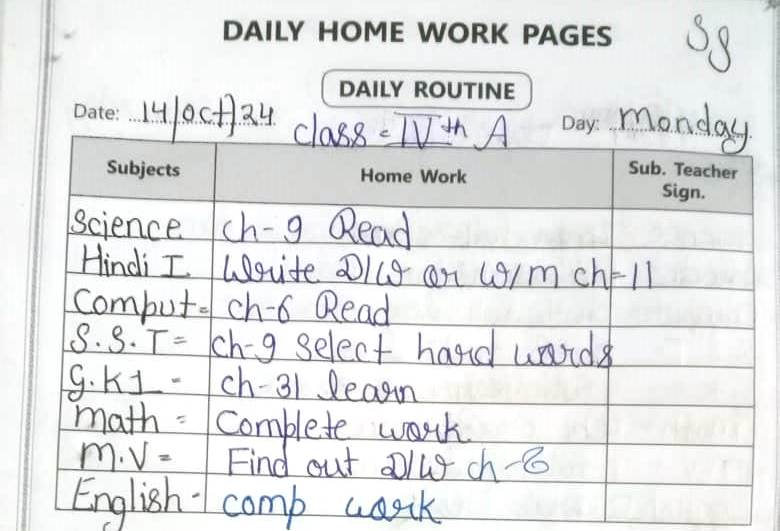 DAILY HOME WORK PAGES
DAILY ROUTINE
Date: 14/oct/24 class = IVth A Day: Monday
Subjects Home Work Sub. Teacher Sign.
Science ch-9 Read
Hindi I Write D/W or w/m ch-11
Comput= ch-6 Read
S.S.T= ch-9 select hard words
G.K1 - ch-31 learn
math = Complete work
M.V= Find out D/W ch-6
English- comp work